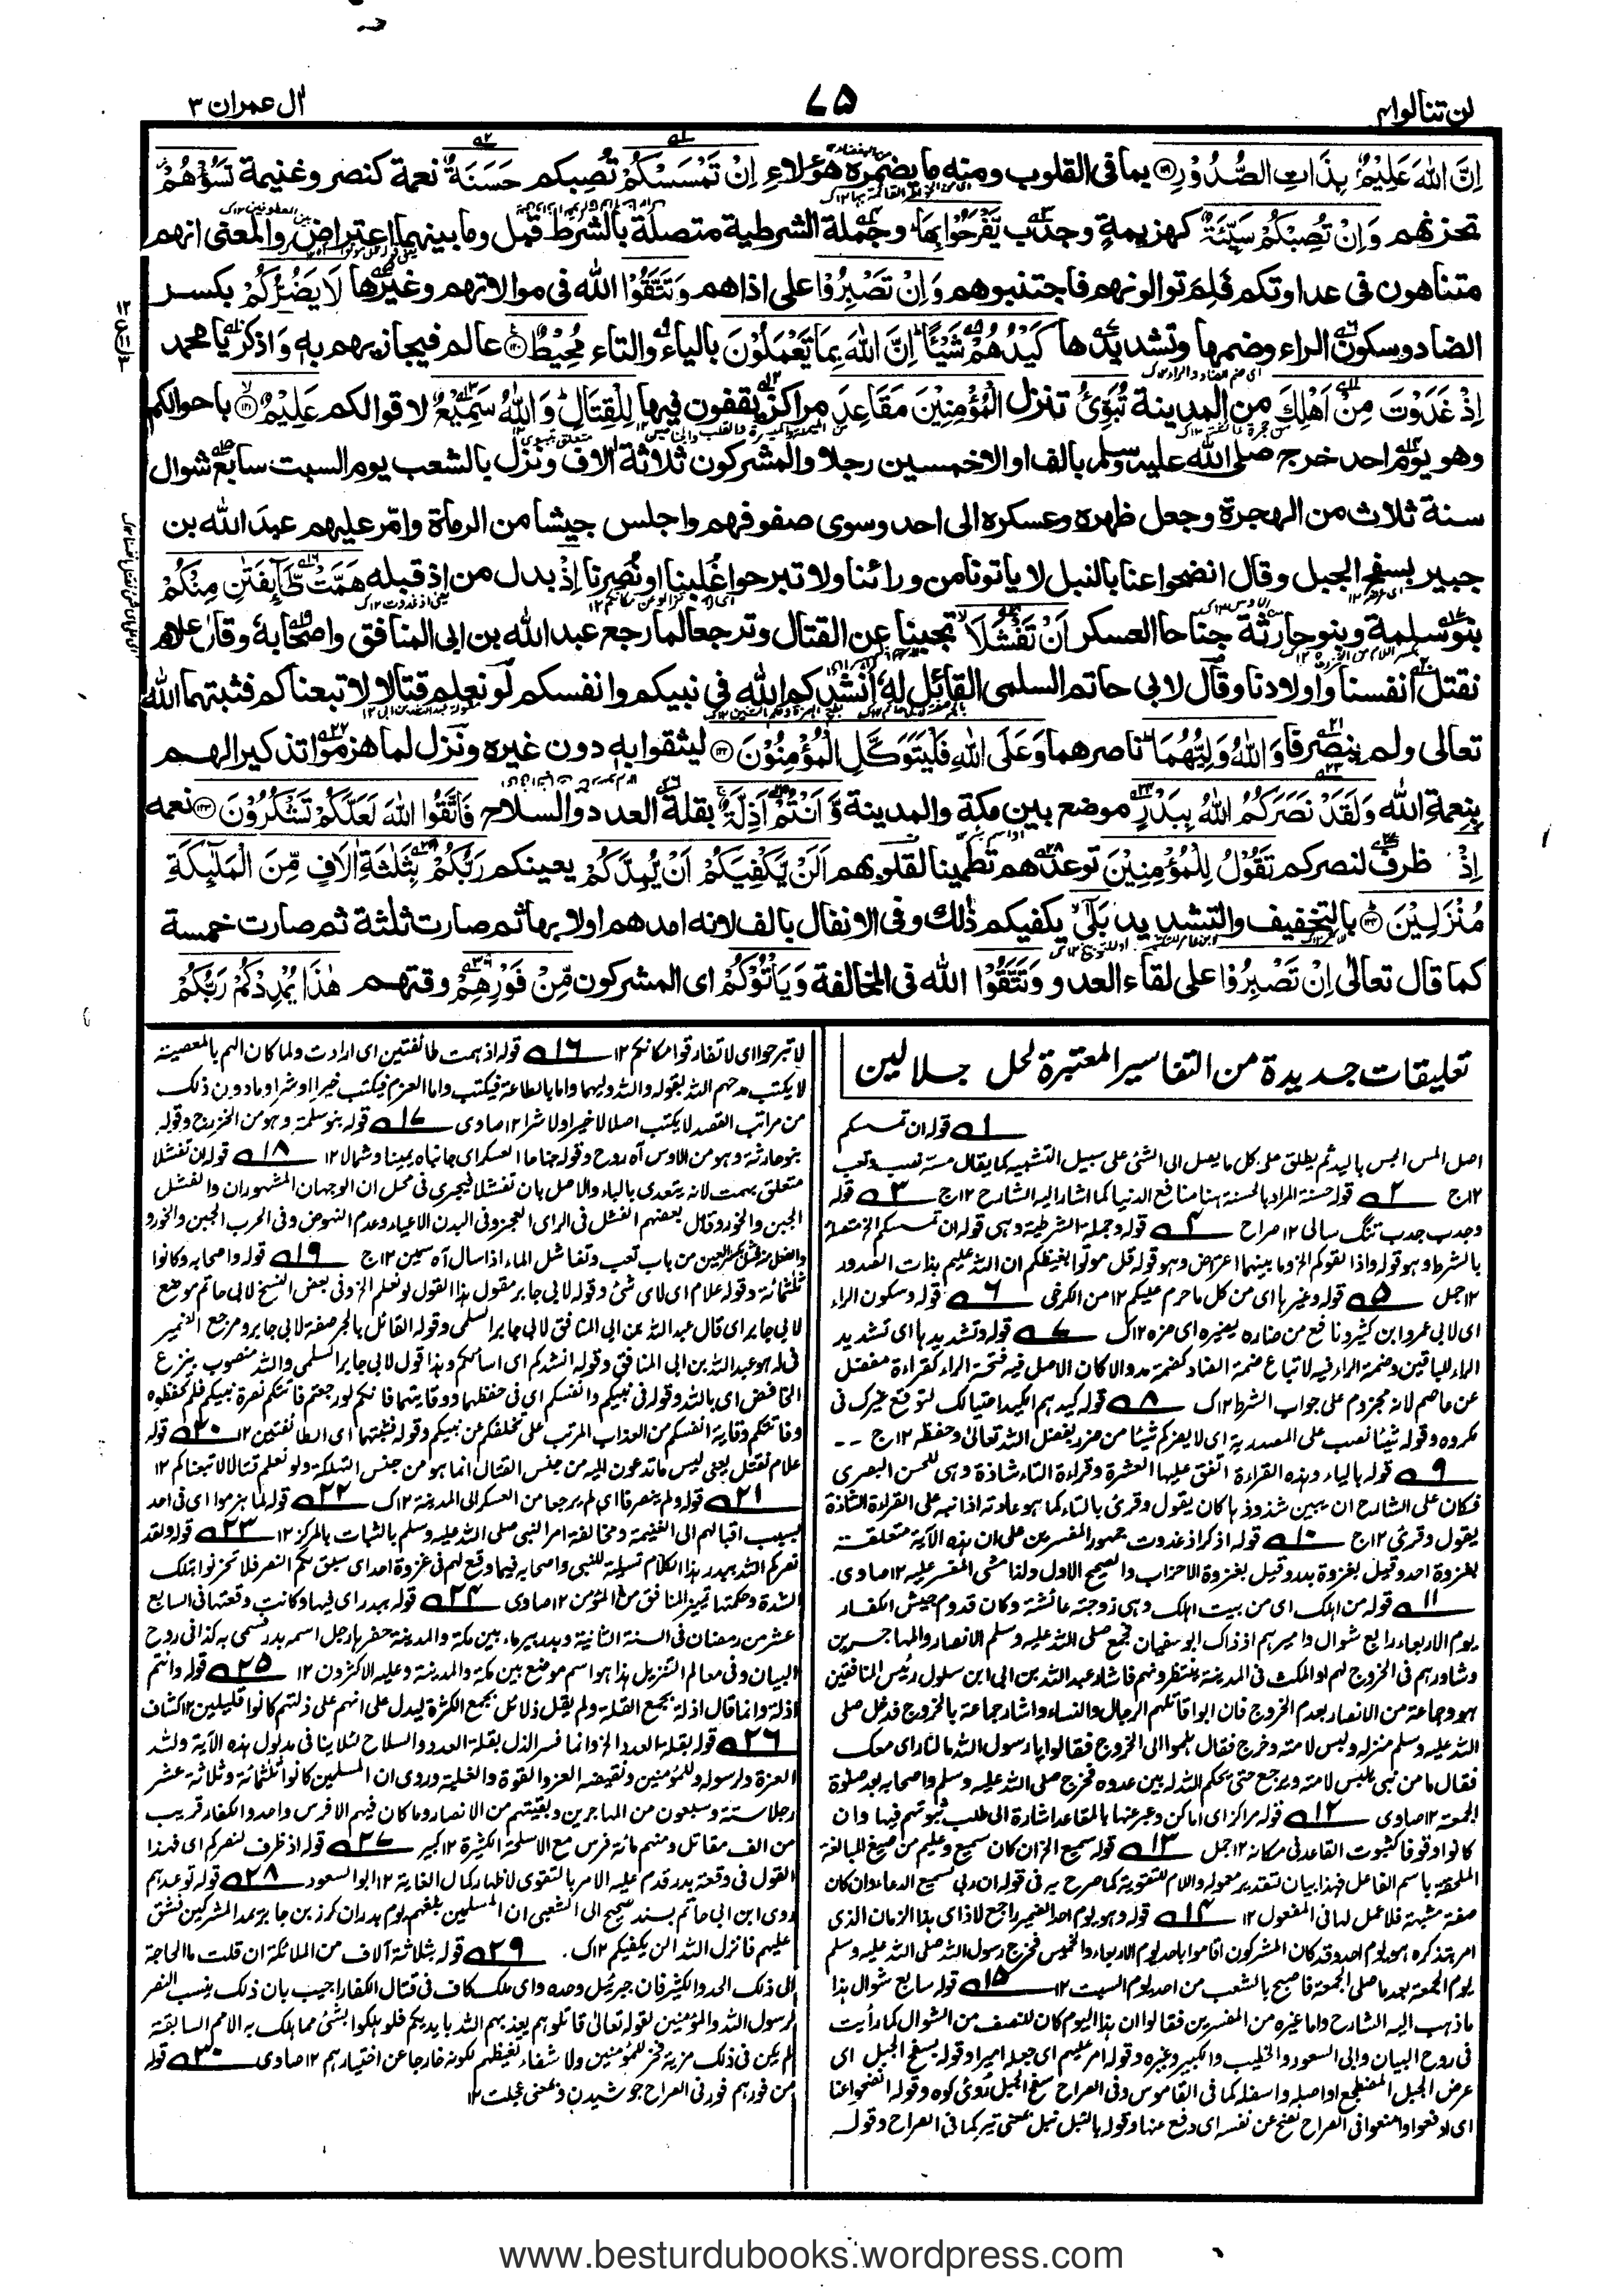 لن تنالوا ٤
٧٥
اٰل عمران ٣
اِنَّ اللّٰهَ عَلِيْمٌۢ بِذَاتِ الصُّدُوْرِ بما فى القلوب ومنه ما يضمره هؤلاء اِنْ تَمْسَسْكُمْ تُصبكم حَسَنَةٌ نعمة كنصر وغنيمة تَسُؤْهُمْ
تحزنهم وَاِنْ تُصِبْكُمْ سَيِّئَةٌ كهزيمة وجدب يَّفْرَحُوْا بِهَا وجملة الشرطية متصلة بالشرط قبل وما بينهما اعتراض والمعنى انهم
متناهون فى عداوتكم فلم توالونهم فاجتنبوهم وَاِنْ تَصْبِرُوْا على اذاهم وَتَتَّقُوْا الله فى موالاتهم وغيرها لَا يَضُرُّكُمْ بكسر
الضاد وسكون الراء وضمها وتشديدها كَيْدُهُمْ شَيْئًا اِنَّ اللّٰهَ بِمَا يَعْمَلُوْنَ بالياء والتاء مُحِيْطٌ عالم فيجازيهم به وَاذكر يا محمد
اِذْ غَدَوْتَ مِنْ اَهْلِكَ من المدينة تُبَوِّئُ تنزل الْمُؤْمِنِيْنَ مَقَاعِدَ مراكز يقفون فيها لِلْقِتَالِ وَاللّٰهُ سَمِيْعٌ لاقوالكم عَلِيْمٌ باحوالكم
وهو يوم احد خرج صلى الله عليه وسلم بالف او الا خمسين رجلا والمشركون ثلاثة الاف ونزل بالشعب يوم السبت سابع شوال
سنة ثلاث من الهجرة وجعل ظهره وعسكره الى احد وسوى صفوفهم واجلس جيشا من الرماة وامّر عليهم عبد الله بن
جبير بسفح الجبل وقال انضحوا عنا بالنبل لا ياتونا من ورائنا ولا تبرحوا غُلبنا او نُصرنا اِذْ بدل من اذ قبله هَمَّتْ طَّآئِفَتٰنِ مِنْكُمْ
بنو سلمة وبنو حارثة جناحا العسكر اَنْ تَفْشَلَا تجبنا عن القتال وترجعا لما رجع عبد الله بن ابى المنافق واصحابه وقال علام
نقتل انفسنا واولادنا وقال لابى حاتم السلمى القائل له انشدكم الله فى نبيكم وانفسكم لو نعلم قتالا لا تبعناكم فثبتهما الله
تعالى ولم ينصرفا وَاللّٰهُ وَلِيُّهُمَا ناصرهما وَعَلَى اللّٰهِ فَلْيَتَوَكَّلِ الْمُؤْمِنُوْنَ ليثقوا به دون غيره ونزل لما هزموا تذكيرا لهم
بنعمة الله وَلَقَدْ نَصَرَكُمُ اللّٰهُ بِبَدْرٍ موضع بين مكة والمدينة وَّاَنْتُمْ اَذِلَّةٌ بقلة العدد والسلاح فَاتَّقُوا اللّٰهَ لَعَلَّكُمْ تَشْكُرُوْنَ نعمه
اِذْ ظرف لنصركم تَقُوْلُ لِلْمُؤْمِنِيْنَ توعدهم تطمينا لقلوبهم اَلَنْ يَّكْفِيَكُمْ اَنْ يُّمِدَّكُمْ يعينكم رَبُّكُمْ بِثَلٰثَةِ اٰلَافٍ مِّنَ الْمَلٰٓئِكَةِ
مُنْزَلِيْنَ بالتخفيف والتشديد بَلٰى يكفيكم ذلك وفى الانفال بالف لانه امدهم اولا بها ثم صارت ثلثة ثم صارت خمسة
كما قال تعالى اِنْ تَصْبِرُوْا على لقاء العدو وَتَتَّقُوْا الله فى المخالفة وَيَاْتُوْكُمْ اى المشركون مِّنْ فَوْرِهِمْ وقتهم هٰذَا يُمْدِدْكُمْ رَبُّكُمْ
تعليقات جديدة من التفاسير المعتبرة لحل جلالين
١ قوله ان تمسسكم
اصل المس الجس باليد ثم يطلق على كل ما يصل الى الشئ على سبيل التشبيه كما يقال مسه نصب وتعب
١٢ج ٢ قوله حسنة المراد بالحسنة هنا منافع الدنيا كما اشار اليه الشارح ١٢ج ٣ قوله
وجدب جدب تنگ سالى ١٢ صراح ٤ قوله وجملة الشرطية وهى قوله ان تمسسكم الخ متصلة
بالشرط وهو قوله واذا لقوكم الخ وما بينهما اعتراض وهو قوله قل موتوا بغيظكم ان الله عليم بذات الصدور
١٢جمل ٥ قوله وغيرها اى من كل ما حرم عليكم ١٢ من الكرخى ٦ قوله وسكون الراء
اى لابى عمرو ابن كثير ونافع من ضاره يضيره اى ضره ١٢ك ٧ قوله وتشديدها اى تشديد
الراء للباقين وضمة الراء فيه لاتباع ضمة الضاد كضمة مد والا كان الاصل فيه فتحة الراء كقراءة مفضل
عن عاصم لانه مجزوم على جواب الشرط ١٢ك ٨ قوله كيدهم الكيد احتيالك لتوقع غيرك فى
مكروه وقوله شيئا نصب على المصدرية اى لا يضركم شيئا من ضرر بفضل الله تعالى وحفظه ١٢ج
٩ قوله بالياء وهذه القراءة اتفق عليها العشرة وقراءة التاء شاذة وهى للحسن البصرى
فكان على الشارح ان يبين شذوذها كان يقول وقرئ بالتاء كما هو عادته اذا نبه على القراءة الشاذة
يقول وقرئ ١٢ج ١٠ قوله اذكر اذ غدوت جمهور المفسرين على ان هذه الآية متعلقة
بغزوة احد وقيل بغزوة بدر وقيل بغزوة الاحزاب والصحيح الاول ولذا مشى المفسر عليه ١٢ صاوى
١١ قوله من اهلك اى من بيت اهلك وهى زوجته عائشة وكان قدوم جيش الكفار
يوم الاربعاء رابع شوال واميرهم اذ ذاك ابو سفيان فجمع صلى الله عليه وسلم الانصار والمهاجرين
وشاورهم فى الخروج لهم او المكث فى المدينة ينتظرونهم فاشار عبد الله بن ابى ابن سلول رئيس المنافقين
هو وجماعة من الانصار بعدم الخروج فان ابوا قاتلهم الرجال والنساء واشار جماعة بالخروج فدخل صلى
الله عليه وسلم منزله ولبس لامته وخرج فقال هلموا الى الخروج فقالوا يا رسول الله ما لنا راى معك
فقال ما من نبى يلبس لامته ويرجع حتى يحكم الله له بين عدوه فخرج صلى الله عليه وسلم واصحابه بعد صلوة
الجمعة ١٢ صاوى ١٢ قوله مراكز اى اماكن وعبر عنها بالمقاعد اشارة الى طلب ثبوتهم فيها وان
كانوا وقوفا كثبوت القاعد فى مكانه ١٢ جمل ١٣ قوله سميع الخ ان كان سميع وعليم من صيغ المبالغة
الملحقة باسم الفاعل فهذا بيان لتقدير معموله واللام للتقوية كما صرح به فى قوله ان ربى لسميع الدعاء وان كان
صفة مشبهة فلا عمل لها فى المفعول ١٢ ١٤ قوله وهو يوم احد الضمير راجع لاذ اى هذا الزمان الذى
امر بتذكره هو يوم احد وقد كان المشركون اقاموا باحد يوم الاربعاء والخميس فخرج رسول الله صلى الله عليه وسلم
يوم الجمعة بعد ما صلى الجمعة فاصبح بالشعب من احد يوم السبت ١٢ ١٥ قوله سابع شوال هذا
ما ذهب اليه الشارح واما غيره من المفسرين فقالوا ان هذا اليوم كان للنصف من الشوال كما رأيت
فى روح البيان وابى السعود والخطيب والكبير وغيره وقوله امر عليهم اى جعله اميرا وقوله بسفح الجبل اى
عرض الجبل المضطجع او اصله واسفله كما فى القاموس وفى الصراح سفح الجبل روئ كوه وقوله انضحوا عنا
اى ادفعوا وامنعوا فى الصراح نضح عن نفسه اى دفع عنها وقوله بالنبل نبل بمعنى تير كما فى الصراح وقوله
لا تبرحوا اى لا تفارقوا مكانكم ١٢ ١٦ قوله اذ همت طائفتين اى ارادت ولما كان الهم بالمعصية
لا يكتب مدحهم الله بقوله والله وليهما واما بالطاعة فيكتب واما العزم فيكتب خيرا او شرا وما دون ذلك
من مراتب القصد لا يكتب اصلا لا خيرا ولا شرا ١٢ صاوى ١٧ قوله بنو سلمة وهو من الخزرج وقوله
بنو حارثة وهو من الاوس اه روح وقوله جناحا العسكر اى جانباه يمينا وشمالا ١٢ ١٨ قوله ان تفشلا
متعلق بهمت لانه يتعدى بالباء والاصل بان تفشلا فيجرى فى محل ان الوجهان المشهوران والفشل
الجبن والخور وقال بعضهم الفشل فى الراى العجز وفى البدن الاعياء وعدم النهوض وفى الحرب الجبن والخور و
الفعل منه فشل بكسر العين من باب تعب وتفاشل الماء اذا سال اه سمين ١٢ج ١٩ قوله واصحابه وكانوا
ثلثمائة وقوله علام اى لاى شئ وقوله لابى جابر مقول هذا القول لو نعلم الخ وفى بعض النسخ لابى حاتم موضع
لابى جابر اى قال عبد الله بن ابى المنافق لابى جابر السلمى وقوله القائل بالجر صفة لابى جابر ومرجع الضمير
فى له هو عبد الله بن ابى المنافق وقوله انشدكم اى اسألكم وهذا قول لابى جابر السلمى والله منصوب بنزع
الخافض اى بالله وقوله فى نبيكم وانفسكم اى فى حفظهما ووقايتهما فانكم لو رجعتم فاتتكم نصرة نبيكم فلم تحفظوه
وفاتتكم وقاية انفسكم من العذاب المرتب على تخلفكم عن نبيكم وقوله فثبتهما اى الطائفتين ١٢ ٢٠ قوله
علام نقتل يعنى ليس ما تدعون اليه من جنس القتال انما هو من جنس التهلكة ولو نعلم قتالا لاتبعناكم ١٢
٢١ قوله ولم ينصرفا اى لم يرجعا من العسكر الى المدينة ١٢ك ٢٢ قوله لما هزموا اى فى احد
بسبب اقبالهم الى الغنيمة ومخالفة امر النبى صلى الله عليه وسلم بالثبات بالمركز ١٢ ٢٣ قوله ولقد
نصركم الله ببدر هذا الكلام تسلية للنبى واصحابه فيما وقع لهم فى غزوة احد اى سبق لكم النصر فلا تحزنوا بتلك
الشدة وحكمتها تمييز المنافق من المؤمن ١٢ صاوى ٢٤ قوله ببدر اى فيها وكانت وقعتها فى السابع
عشر من رمضان فى السنة الثانية وبدر بير ماء بين مكة والمدينة حفرها رجل اسمه بدر فسمى به كذا فى روح
البيان وفى معالم التنزيل هذا هو اسم موضع بين مكة والمدينة وعليه الاكثرون ١٢ ٢٥ قوله وانتم
اذلة وانما قال اذلة بجمع القلة ولم يقل ذلائل بجمع الكثرة ليدل على انهم على ذلتهم كانوا قليلين ١٢ كشاف
٢٦ قوله بقلة العدد الخ وانما فسر الذل بقلة العدد والسلاح لئلا ينافى مدلول هذه الآية ولله
العزة ولرسوله وللمؤمنين ونقيضه العز والقوة والغلبة وروى ان المسلمين كانوا ثلثمائة وثلاثة عشر
رجلا ستة وسبعون من المهاجرين وبقيتهم من الانصار وما كان فيهم الا فرس واحد والكفار قريب
من الف مقاتل ومنهم مائة فرس مع الاسلحة الكثيرة ١٢ كبير ٢٧ قوله اذ ظرف لنصركم اى فهذا
القول فى وقعة بدر قدم عليه الامر بالتقوى لاظهار كمال الغاية ١٢ ابو السعود ٢٨ قوله توعدهم
روى ابن ابى حاتم بسند صحيح الى الشعبى ان المسلمين بلغهم يوم بدر ان كرز بن جابر يمد المشركين فشق
عليهم فانزل الله الن يكفيكم ١٢ك ٢٩ قوله بثلاثة آلاف من الملائكة ان قلت ما الحاجة
الى ذلك الحد والكثير فان جبرئيل وحده واى ملك كاف فى قتال الكفار اجيب بان ذلك ينسب النصر
لرسول الله والمؤمنين لقوله تعالى قاتلوهم يعذبهم الله بايديكم فلو هلكوا بشئ مما هلك به الامم السابقة
لم يكن فى ذلك مزية فخر للمؤمنين ولا شفاء لغيظهم لكونه خارجا عن اختيارهم ١٢ صاوى ٣٠ قوله
من فورهم فور فى الصراح جوشيدن وبمعنى عجلت ١٢
www.besturdubooks.wordpress.com